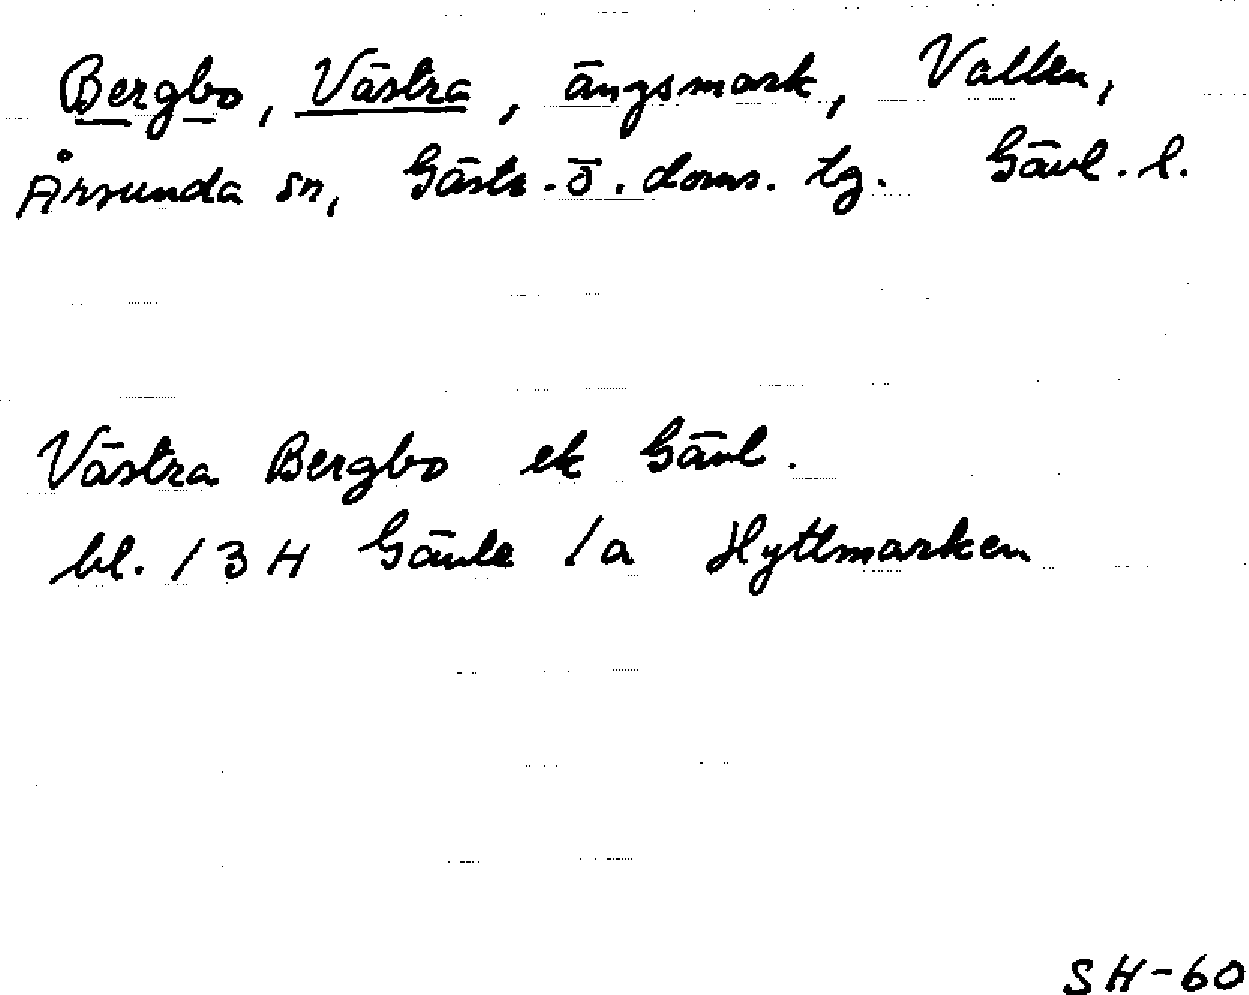 Bergbo, Västra, ängsmark, Vallen,
Årsunda sn, Gästr.ö. doms. tg. Gävl. l.
Västra Bergbo ek Gävl.
bl. 13H Gävle 1a Hyttmarken
SH-60